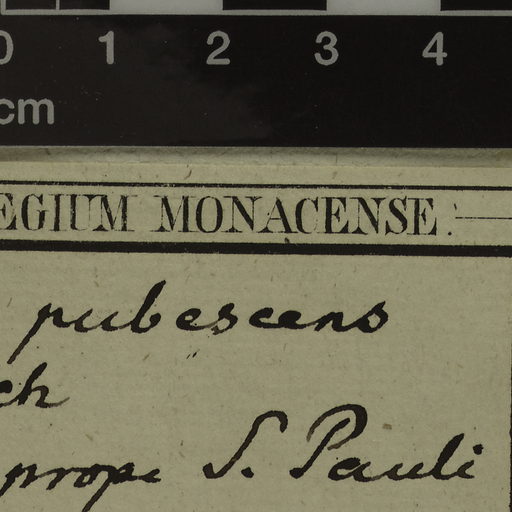 0 1 2 3 4
cm
EGIUM MONACENSE.
pubescens
ch
prope S. Pauli